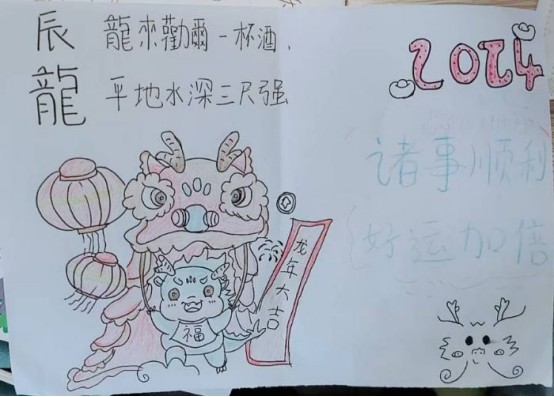 辰龍
龍來勸爾一杯酒,
平地水深三尺强
2024
诸事顺利
好运加倍
龙年大吉
福